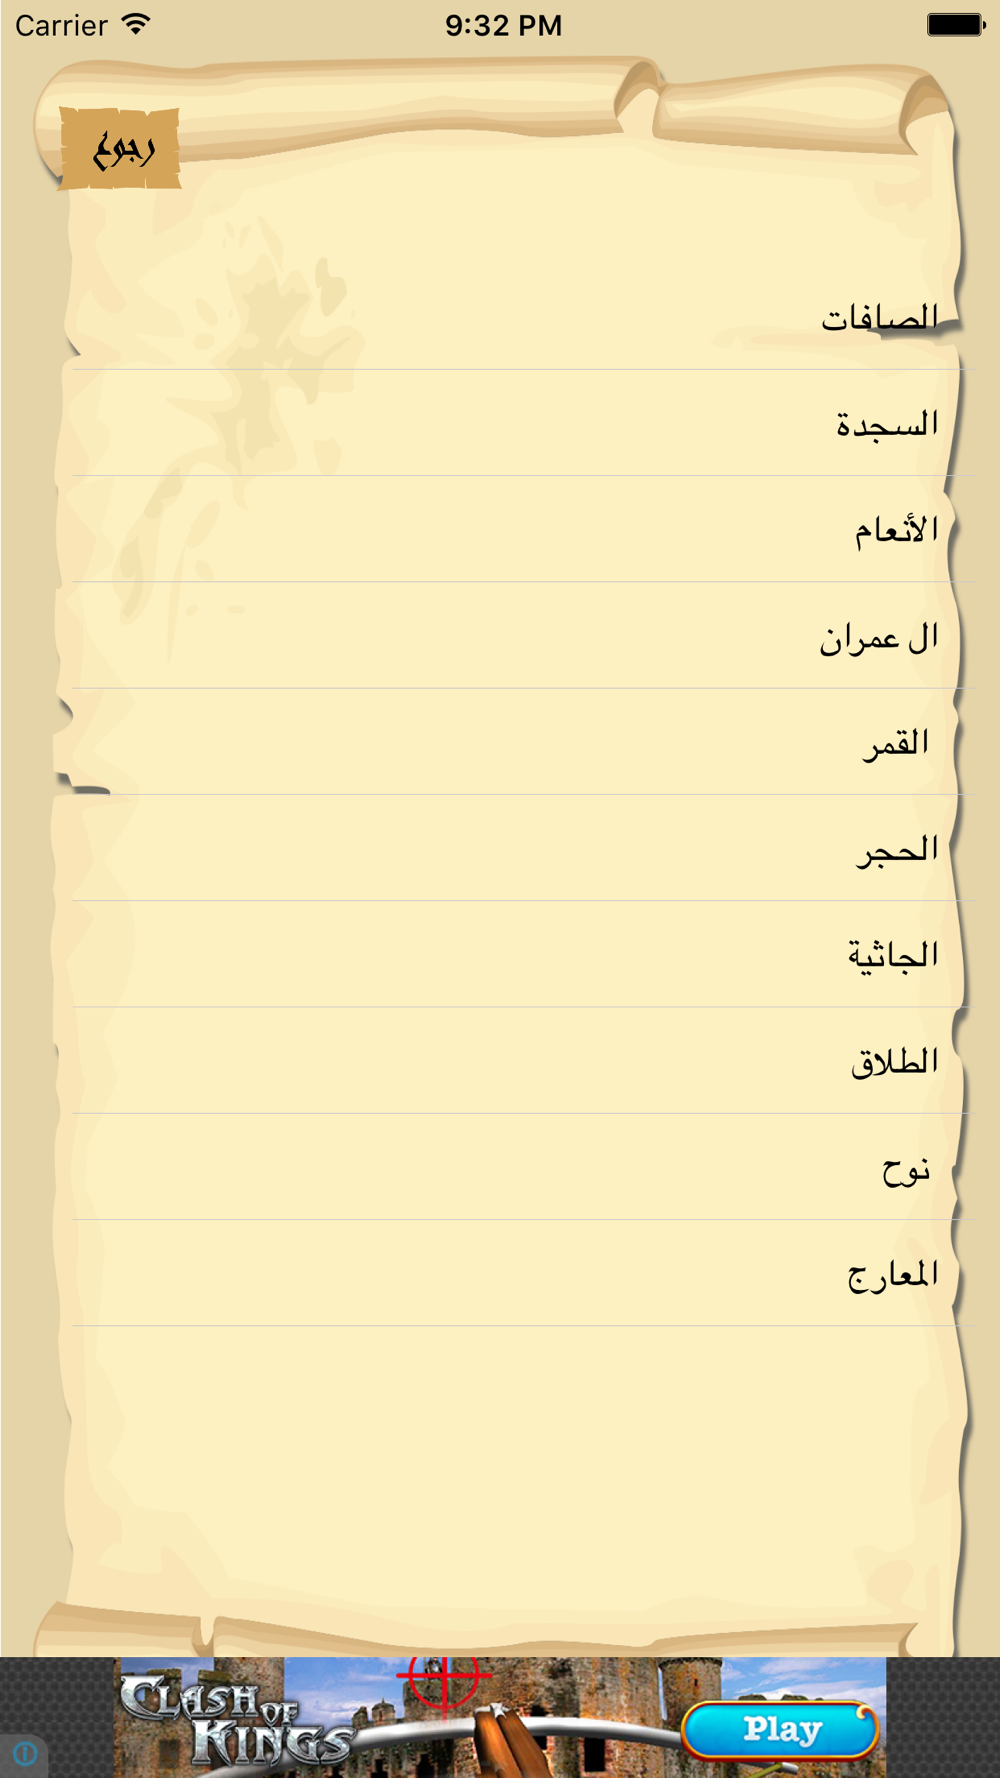 Carrier 9:32 PM
رجوع
الصافات
السجدة
الأنعام
ال عمران
القمر
الحجر
الجاثية
الطلاق
نوح
المعارج
CLASH OF KINGS
Play